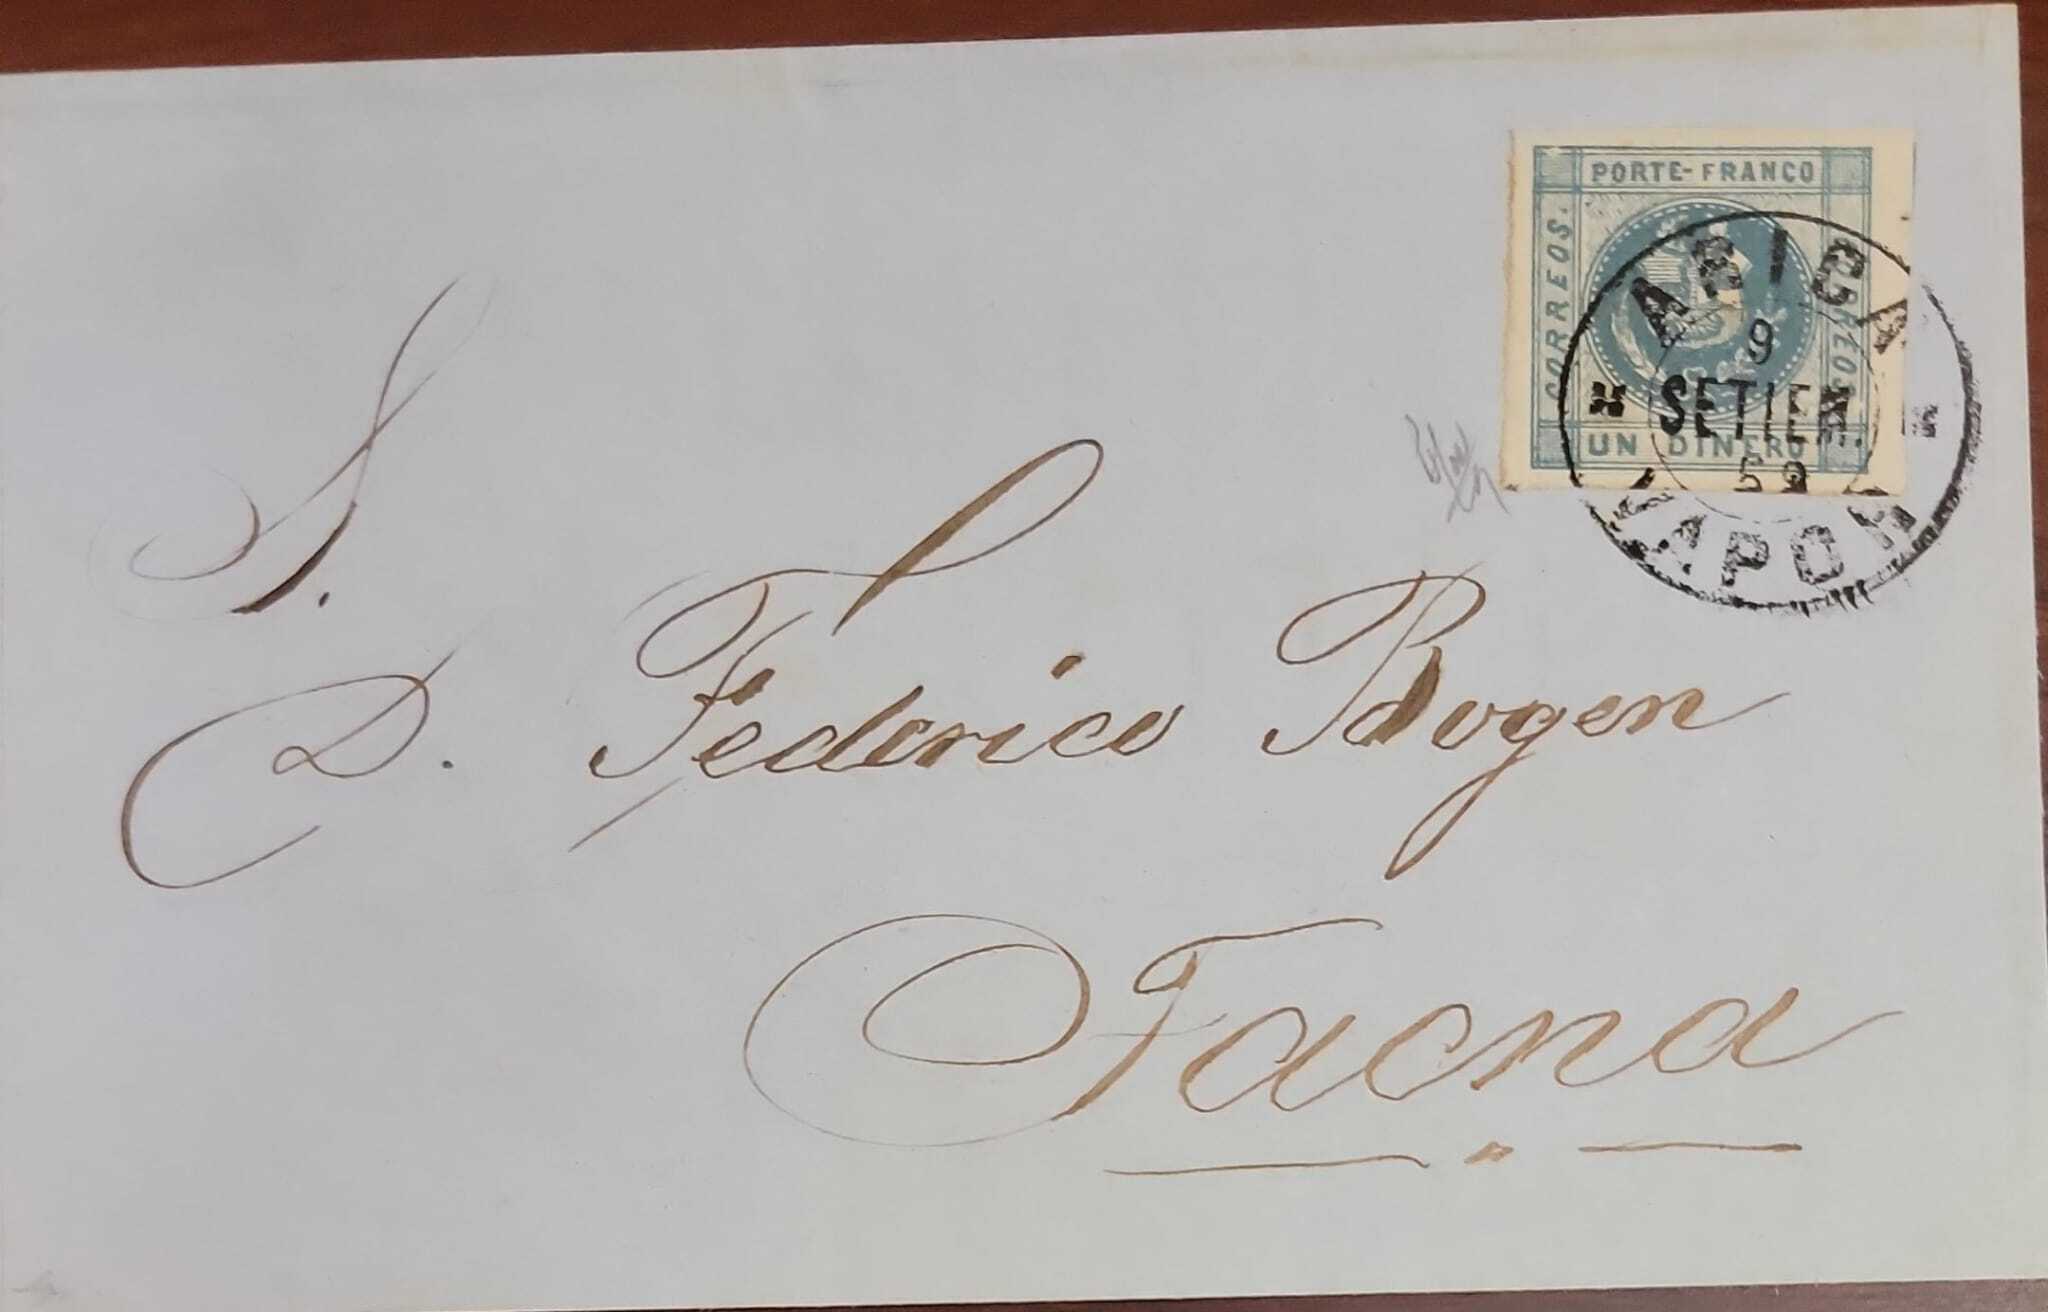 PORTE-FRANCO
CORREOS.
CORREOS.
UN DINERO
ARICA
9
SETIEM.
59
VAPOR
S.
D. Federico Bogen
Tacna